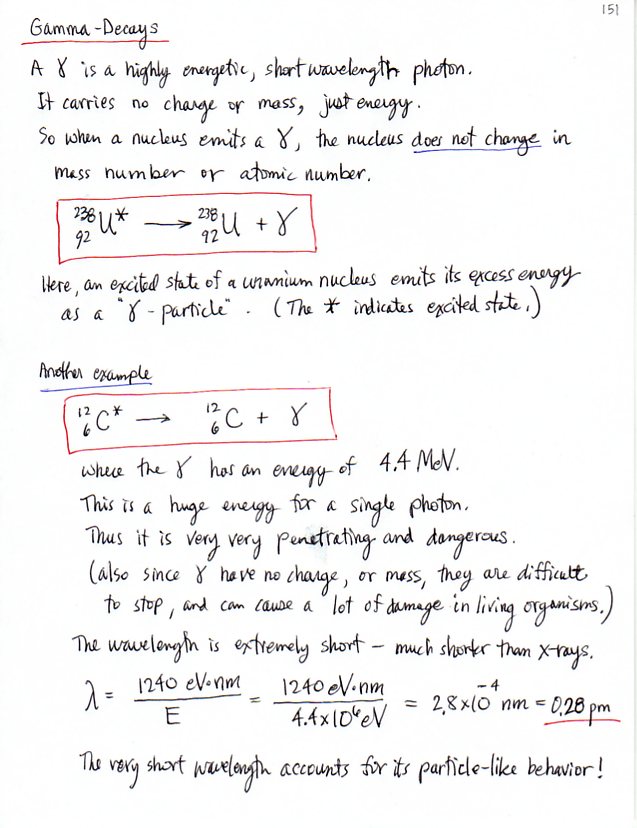 151
Gamma-Decays
A γ is a highly energetic, short wavelength photon.
It carries no charge or mass, just energy.
So when a nucleus emits a γ, the nucleus does not change in
mass number or atomic number.
²³⁸₉₂U* → ²³⁸₉₂U + γ
Here, an excited state of a uranium nucleus emits its excess energy
as a "γ-particle". (The * indicates excited state.)
Another example
¹²₆C* → ¹²₆C + γ
where the γ has an energy of 4.4 MeV.
This is a huge energy for a single photon.
Thus it is very very penetrating and dangerous.
(also since γ have no charge, or mass, they are difficult
to stop, and can cause a lot of damage in living organisms.)
The wavelength is extremely short – much shorter than x-rays.
λ = 1240 eV·nm / E = 1240 eV·nm / 4.4×10⁶ eV = 2.8×10⁻⁴ nm = 0.28 pm
The very short wavelength accounts for its particle-like behavior!